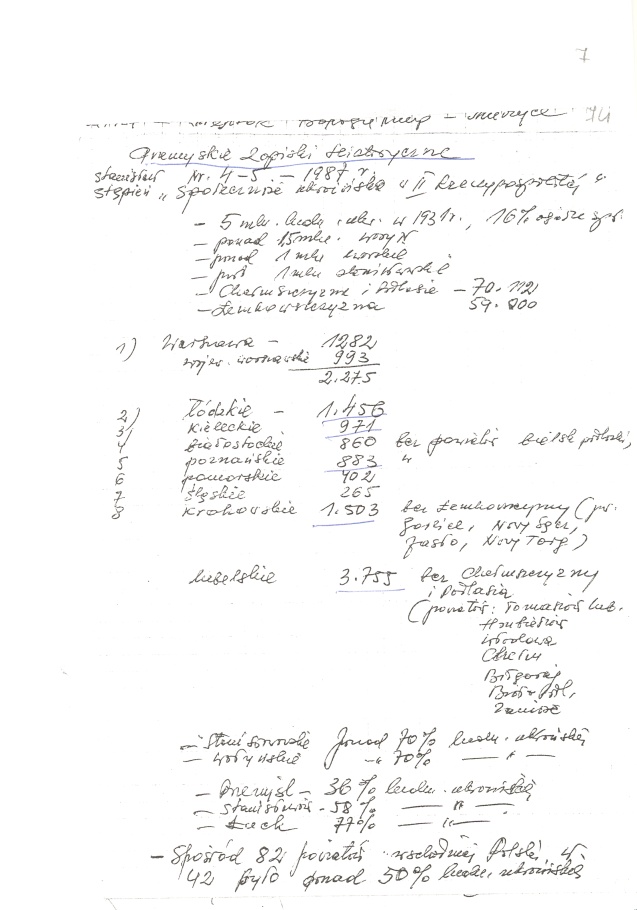 7
74
Przemyskie Zapiski Historyczne
Stanisław Nr. 4-5. - 1987 r.
Stępień „Społeczność ukraińska w II Rzeczypospolitej"
- 5 mln. ludn. ukr. w 1931 r., 16%
- ponad 1,5 mln.
- ponad 1 mln lwowskie
- 1 mln stanisławowskie
- Chełmszczyzna i Podlasie - 70.112
- Łemkowszczyzna 59.800
1) Warszawa - 1282
wojew. warszawskie 993
2.275
2) łódzkie - 1.456
3) kieleckie 971
4) białostockie 860 bez powiatów bielsk podlaski,
5 poznańskie 883 "
6 pomorskie 402
7 śląskie 265
8 krakowskie 1.503 bez Łemkowszczyzny (pow.
Gorlice, Nowy Sącz,
Jasło, Nowy Targ)
lubelskie 3.755 bez Chełmszczyzny
i Podlasia
(powiatów: Tomaszów Lub.
Hrubieszów
Włodawa
Chełm
Biłgoraj
Biała Podl,
Zamość
- Stanisławowskie ponad 70% ludn. ukraińskiej
- wołyńskie -"- 70% — " —
- Przemyśl - 36% ludn. ukraińskiej
- Stanisławów - 58% — " —
- Łuck 77% — " —
- Spośród 82 powiatów wschodniej Polski, w
42 było ponad 50% ludn. ukraińskiej